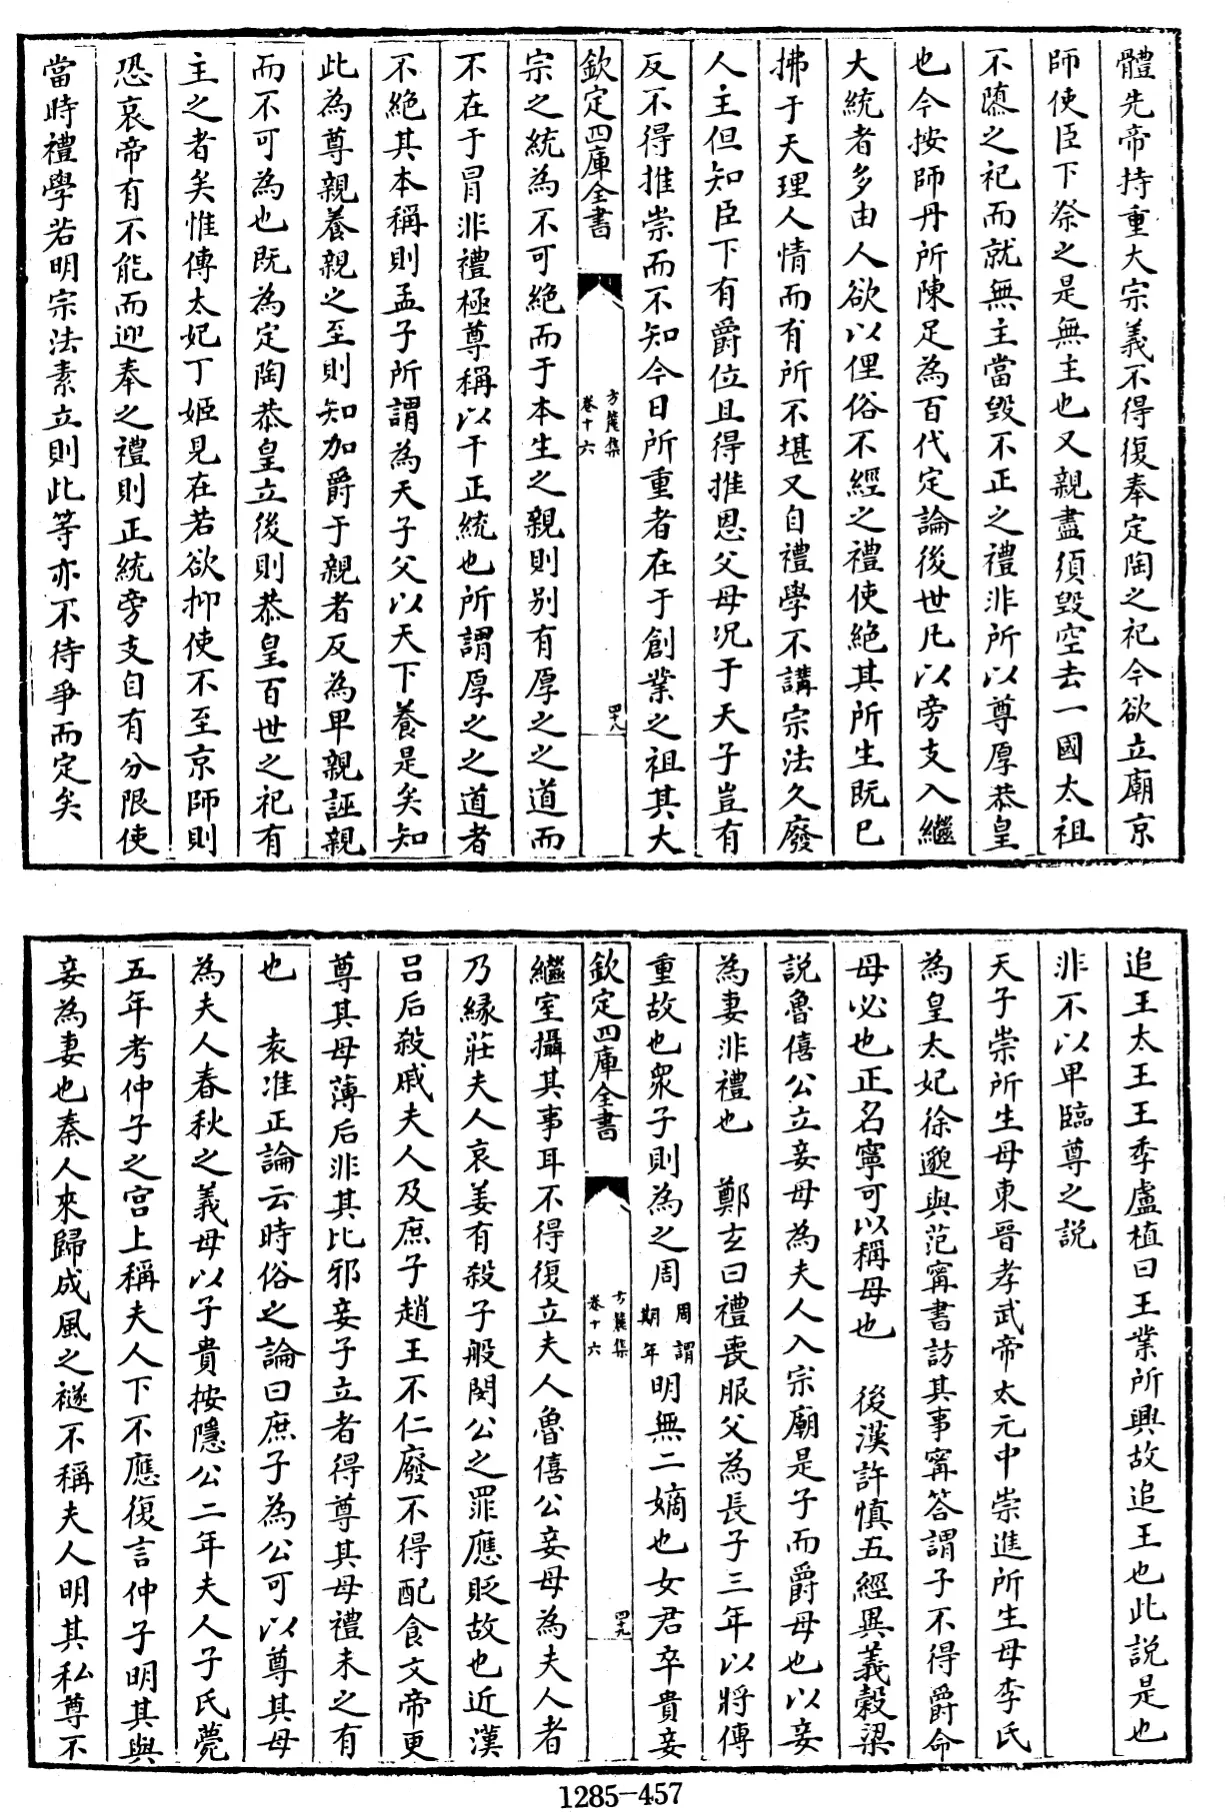 體先帝持重大宗義不得復奉定陶之祀今欲立廟京
師使臣下祭之是無主也又親盡須毀空去一國太祖
不隳之祀而就無主當毀不正之禮非所以尊厚恭皇
也今按師丹所陳足為百代定論後世凡以旁支入繼
大統者多由人欲以俚俗不經之禮使絶其所生既已
拂于天理人情而有所不堪又自禮學不講宗法久廢
人主但知臣下有爵位且得推恩父母况于天子豈有
反不得推崇而不知今日所重者在于創業之祖其大
欽定四庫全書
方麓集
卷十六
四八
宗之統為不可絶而于本生之親則别有厚之之道而
不在于冒非禮極尊稱以干正統也所謂厚之之道者
不絶其本稱則孟子所謂為天子父以天下養是矣知
此為尊親養親之至則知加爵于親者反為卑親誣親
而不可為也既為定陶恭皇立後則恭皇百世之祀有
主之者矣惟傅太妃丁姬見在若欲抑使不至京師則
恐哀帝有不能而迎奉之禮則正統旁支自有分限使
當時禮學若明宗法素立則此等亦不待爭而定矣
追王太王王季盧植曰王業所興故追王也此説是也
非不以卑臨尊之説
天子崇所生母東晉孝武帝太元中崇進所生母李氏
為皇太妃徐邈與范甯書訪其事甯答謂子不得爵命
母必也正名寧可以稱母也　後漢許慎五經異義穀梁
説魯僖公立妾母為夫人入宗廟是子而爵母也以妾
為妻非禮也　鄭玄曰禮喪服父為長子三年以將傳
重故也衆子則為之周周謂期年明無二嫡也女君卒貴妾
欽定四庫全書
方麓集
卷十六
四九
繼室攝其事耳不得復立夫人魯僖公妾母為夫人者
乃縁莊夫人哀姜有殺子般閔公之罪應貶故也近漢
吕后殺戚夫人及庶子趙王不仁廢不得配食文帝更
尊其母薄后非其比邪妾子立者得尊其母禮未之有
也　袁准正論云時俗之論曰庶子為公可以尊其母
為夫人春秋之義母以子貴按隱公二年夫人子氏薨
五年考仲子之宫上稱夫人下不應復言仲子明其與
妾為妻也秦人來歸成風之襚不稱夫人明其私尊不
1285-457